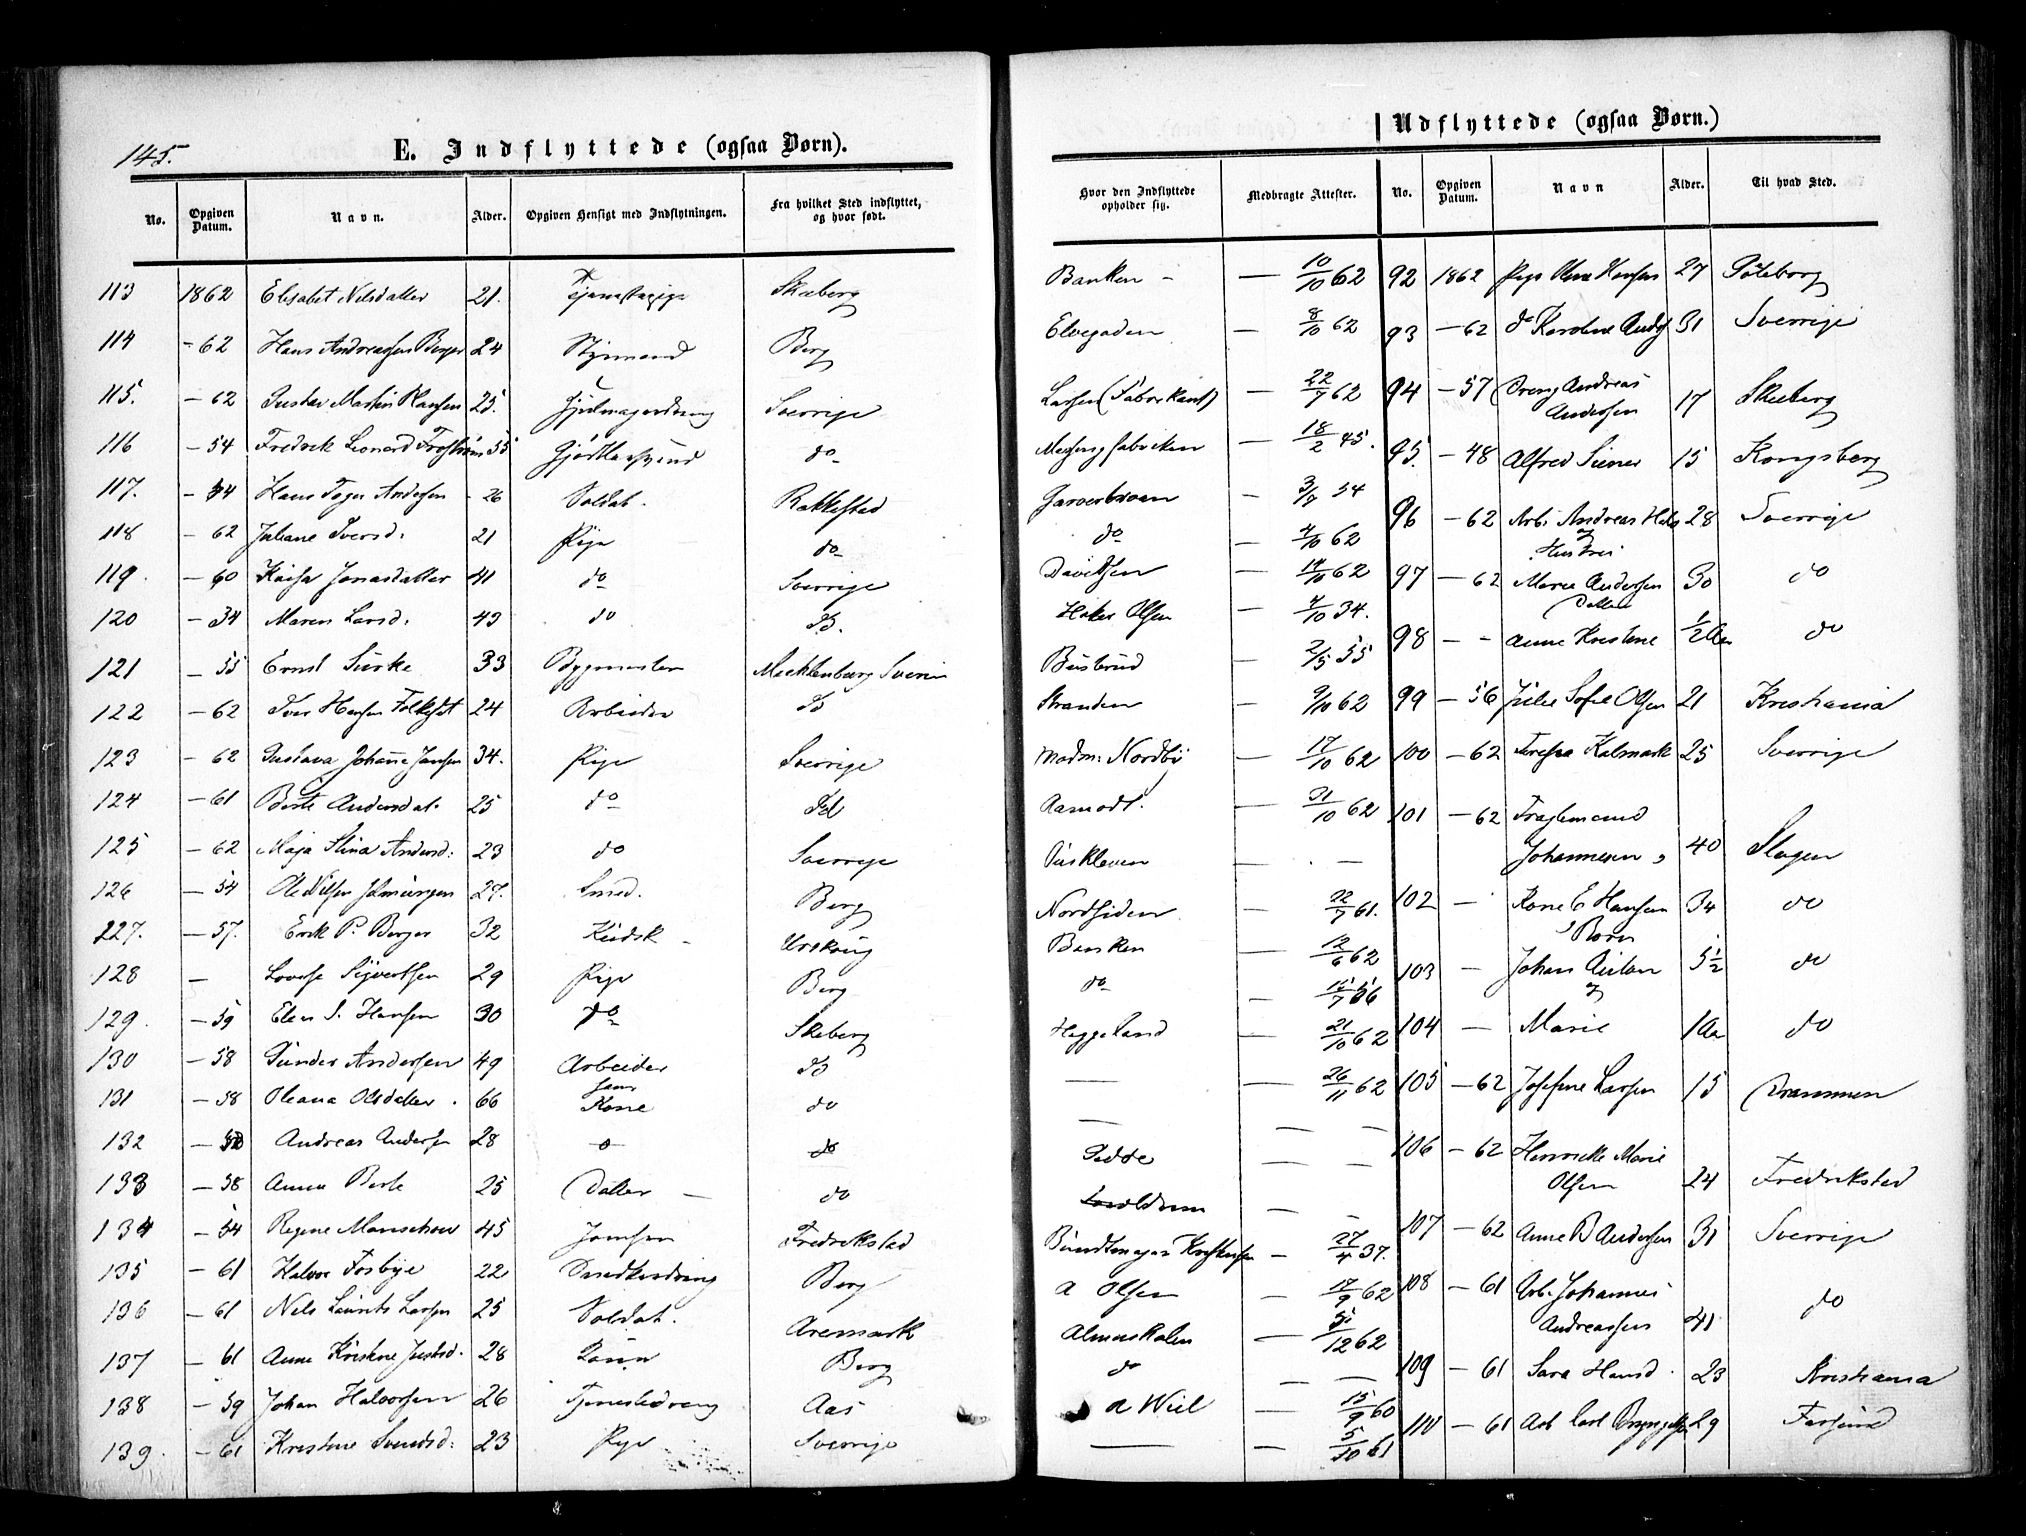 145.
E. Indflyttede (ogsaa Børn).
No. Opgiven Datum. Navn. Alder. Opgiven Hensigt med Indflytningen. Fra hvilket Sted indflyttet, og hvor født.
113 1862 Elisabet Nilsdatter 21. Tjenestepige Skeberg
114 - 62 Hans Andreassen Berger 24 Styrmand Berg
115. - 62 Gustav Martin Hansen 25. Hjulmagerdreng Sverrige
116 - 54 Fredrik Leonard Frostrøm 55 do
117. - 54 Hans Toger Andersen - 26 Soldat. Rakkestad
118 - 62 Juliane Iversd: 21 Pige do
119. - 60 Kaisa Jonasdatter 41 do Sverrige
120 - 34 Maren Larsd: 43 do
121 - 55 Ernst Sürke 33 Bygmester Mecklenburg Sverin
122 - 62 Iver Hansen 24 Arbeider
123 - 62 Gustava Johanne Jansen 34. Pige Sverrige
124 - 61 Berte Andersdat. 25 do
125 - 62 Maja Stina Andersd: 23 do Sverrige
126 - 54 Ole Nilsen 27. Smed. Berg
227. - 57. Erik P. Berger 32 Kudsk - Urskoug
128 - Lovise Sivertsen 29 Pige Berg
129. - 59 Elen S. Hansen 30 do Skeberg
130 - 58 Gunder Andersen 49 Arbeider do
131 - 58 Oleana Olsdatter. 66 hans Kone do
132 - 58 Andreas Andersen 28 - o - do
133 - 58 Anna Berte 25 Datter - do
134 - 54 Regine Manschow 45 Jomfru Fredrikstad
135 - 61 Halvor Fosbye 22 Snedkerdreng Berg
136 - 61 Nils Laurits Larsen 25 Soldat. Aremark
137 - 61 Anne Kristine Justsd. 28 Kone Berg
138 - 59 Johan Halvorsen 26 Tjenestedreng Aas
139. - 61 Kristine Svendsd: 23 Pige Sverrige
Udflyttede (ogsaa Børn.)
Hvor den Indflyttede opholder sig. Medbragte Attester. No. Opgiven Datum. Navn Alder. Til hvad Sted.
Banken - - 10/10 62
Elvegaden - 8/10 62
Larsen (Fabrikant) - 22/7 62
Messingfabriken - 18/2 45.
Garverbroen - 3/7 54
do - 4/10 62
Davidsen - 14/10 62
Haker Olsen - 4/10 34.
Busterud - 2/5 55
Stranden - 9/10 62
Madm: Nordby - 17/10 62
Aamodt. - 31/10 62
Puskleven - . -
Nordsiden 22/7 61.
Banken - 12/6 62
do - 15/7 56
Heggeland - 21/10 62
- - 26/11 62
- - -
Tedde - -
- -
Bundtmager Kristensen - 27/4 37.
A Olsen - 17/9 62
Almuskolen - 31/12 62
do - -
A Wiel - 15/9 60
- - 5/10 61
92 1862 Pige Oline Hansen 27 Göteborg
93 - 62 do Karoline Anders 31 Sverrige
94 - 57 Dreng Andreas
Andersen 17 Skeberg
95. - 48 Alfred Siener 15 Kongsberg
96 - 62 Arb: Andreas Hals 28 Sverrige
og Hustru
97 - 62 Maren Andersen 30 do
Datter
98 - - Anne Kristine 1/2 Aar do
99 - 56 Julie Sofie Olsen 21 Kristiania
100 - 62 Teresia Kalmark 25 Sverrige
101 - 62 Fragtemand
Johannesen, 40 Slagen
102 - Kone E Hansen 34 do
Børn
103 - Johan Anton 5 1/2 do
og
104 - Marie 1 Aar do
105 - 62 Josefine Larsen 15 Drammen
106 - 62 Henriette Marie
Olsen 24 Fredrikstad
107 - 62 Anne B Andersen 31 Sverrige
108 - 61 Arb. Johannes
Andreassen 41 do
109 - 61 Sara Hansd. 23 Kristiania
110 - 61 Arb Carl 29 Farsund